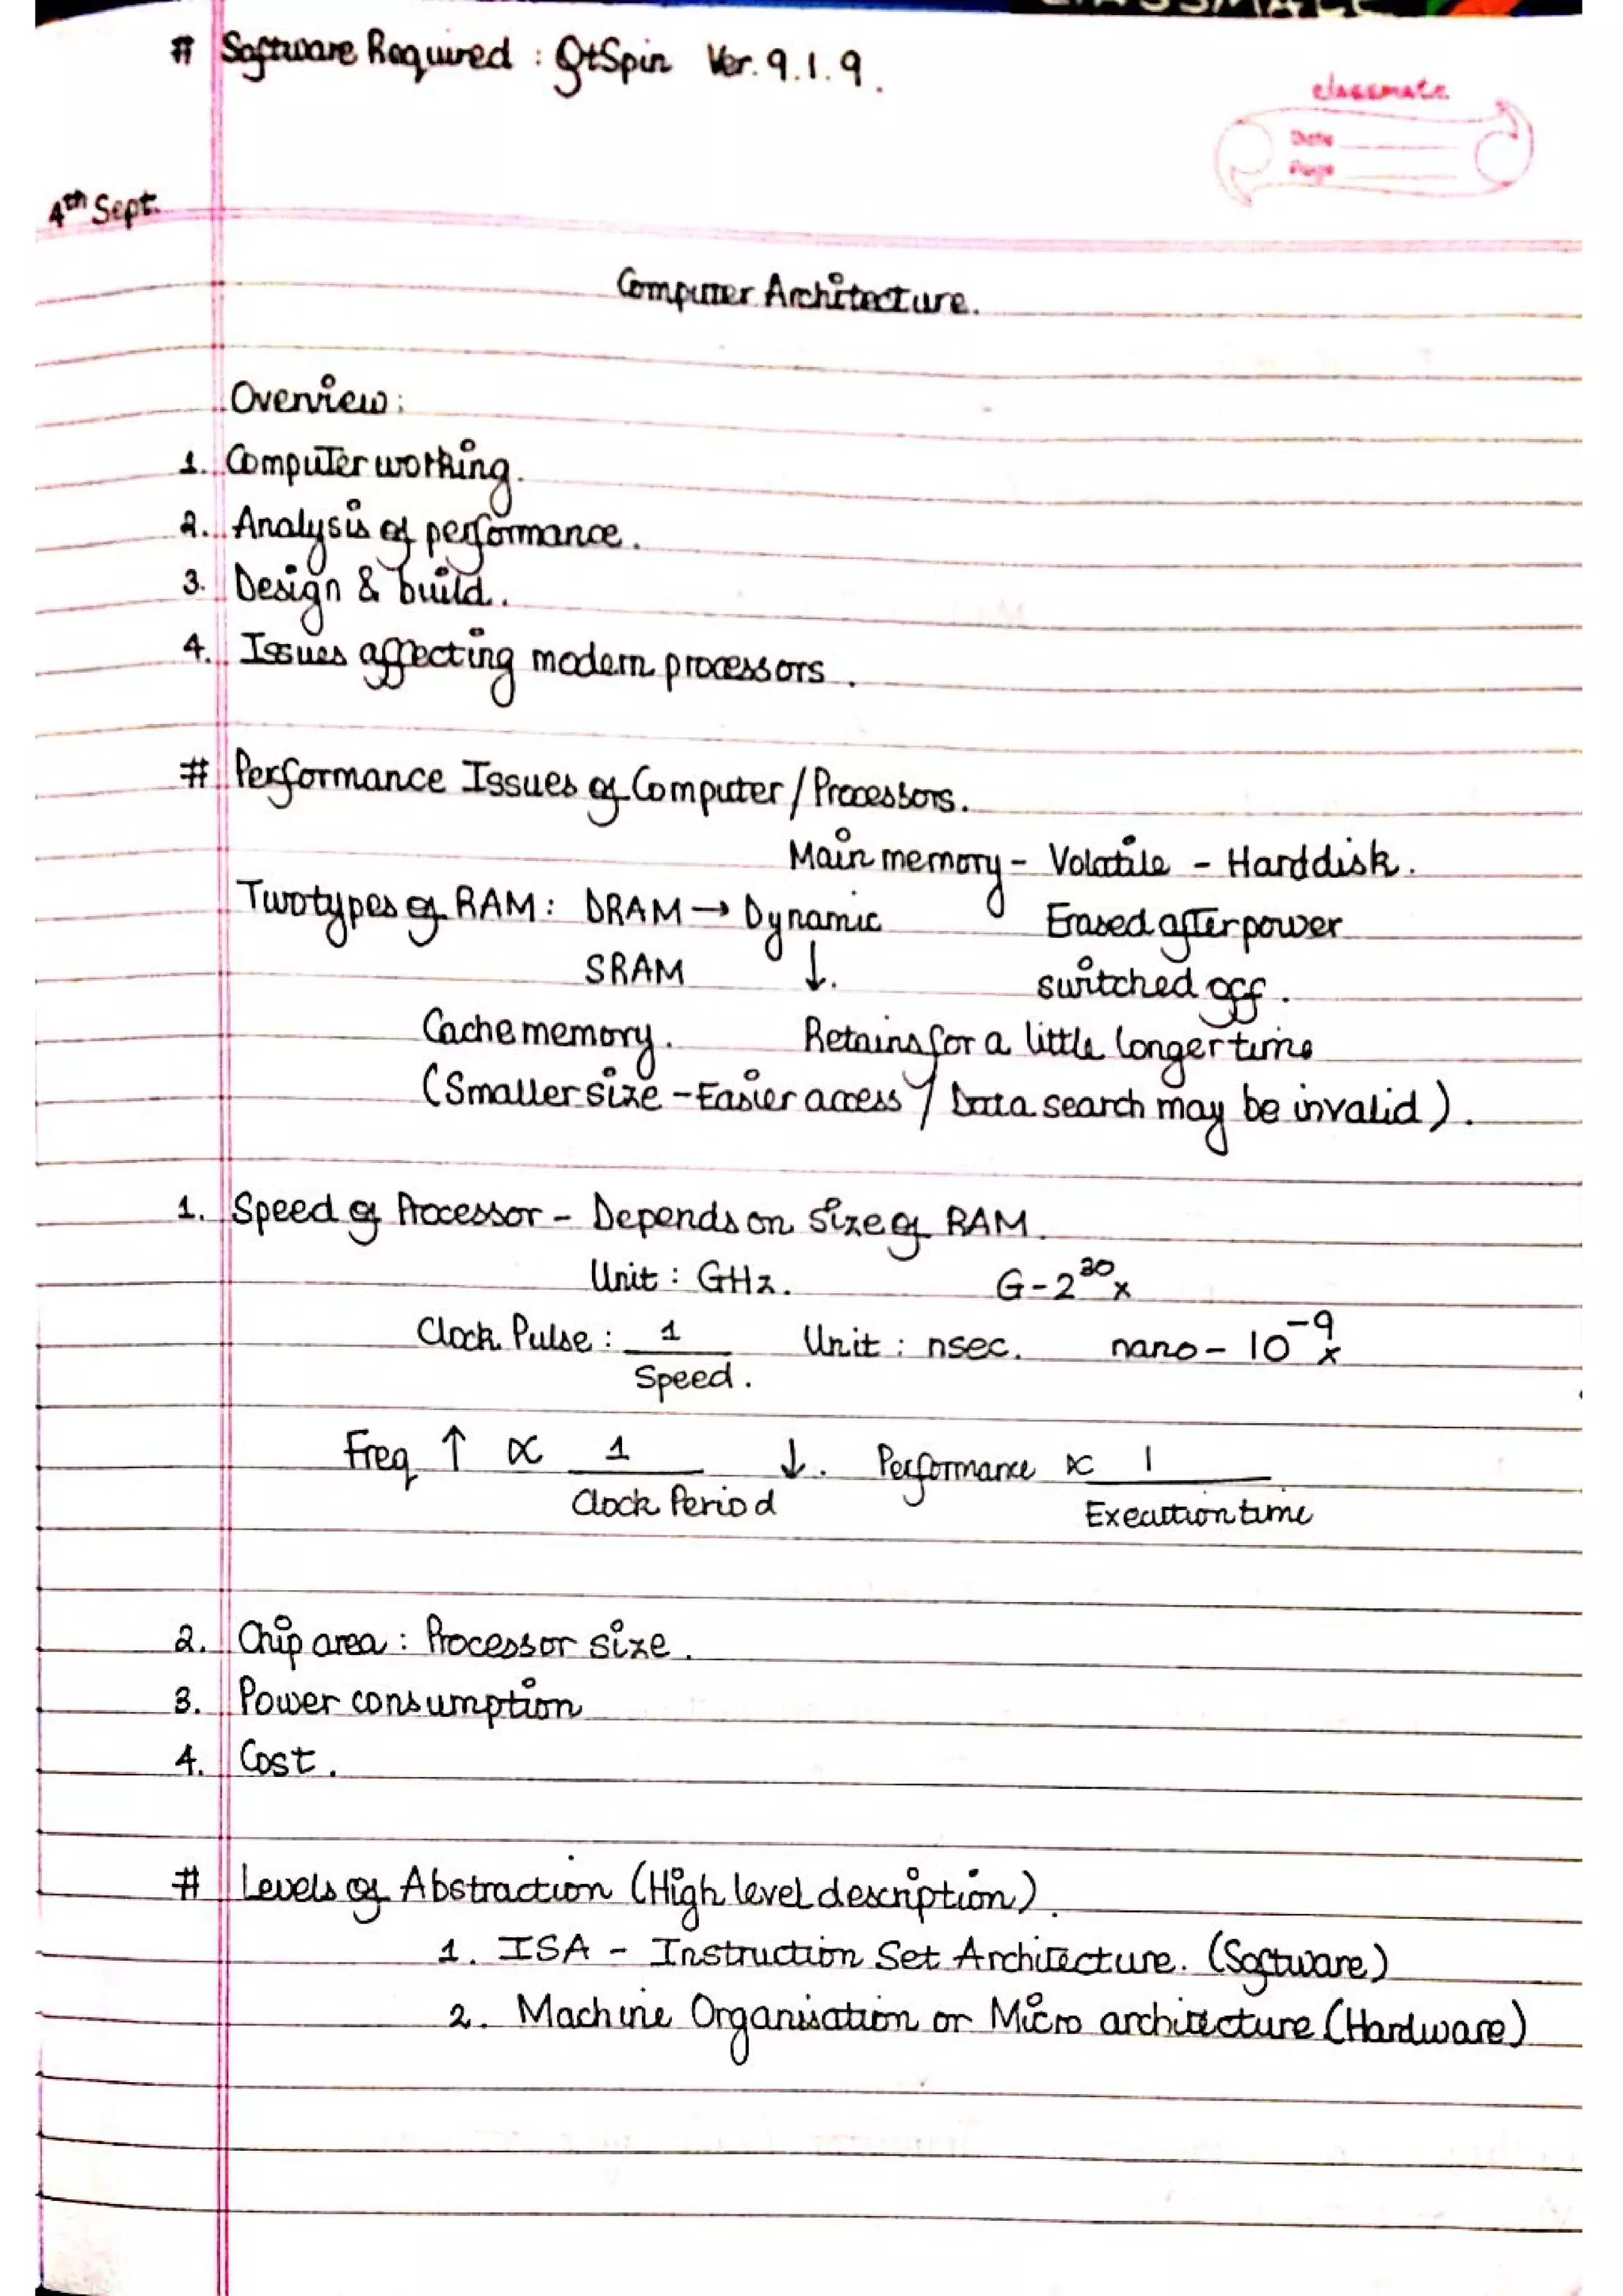 # Software Required : QtSpin Ver. 9.1.9.
classmate
Date
Page
4th Sept.
Computer Architecture.
Overview :
1. Computer working.
2. Analysis of performance.
3. Design & build.
4. Issues affecting modern processors.
# Performance Issues of Computer / Processors.
Main memory - Volatile - Harddisk.
Two types of RAM : DRAM → Dynamic Erased after power
SRAM ↓. switched off.
Cache memory. Retains for a little longer time
(Smaller size - Easier access / Data search may be invalid).
1. Speed of Processor - Depends on size of RAM.
Unit : GHz. G - 2^30 x
Clock Pulse : 1 / Speed. Unit : nsec. nano - 10^-9 x
Freq ↑ ∝ 1 / Clock Period ↓. Performance ∝ 1 / Execution time
2. Chip area : Processor size.
3. Power consumption
4. Cost.
# Levels of Abstraction (High level description).
1. ISA - Instruction Set Architecture. (Software)
2. Machine Organisation or Micro architecture (Hardware)